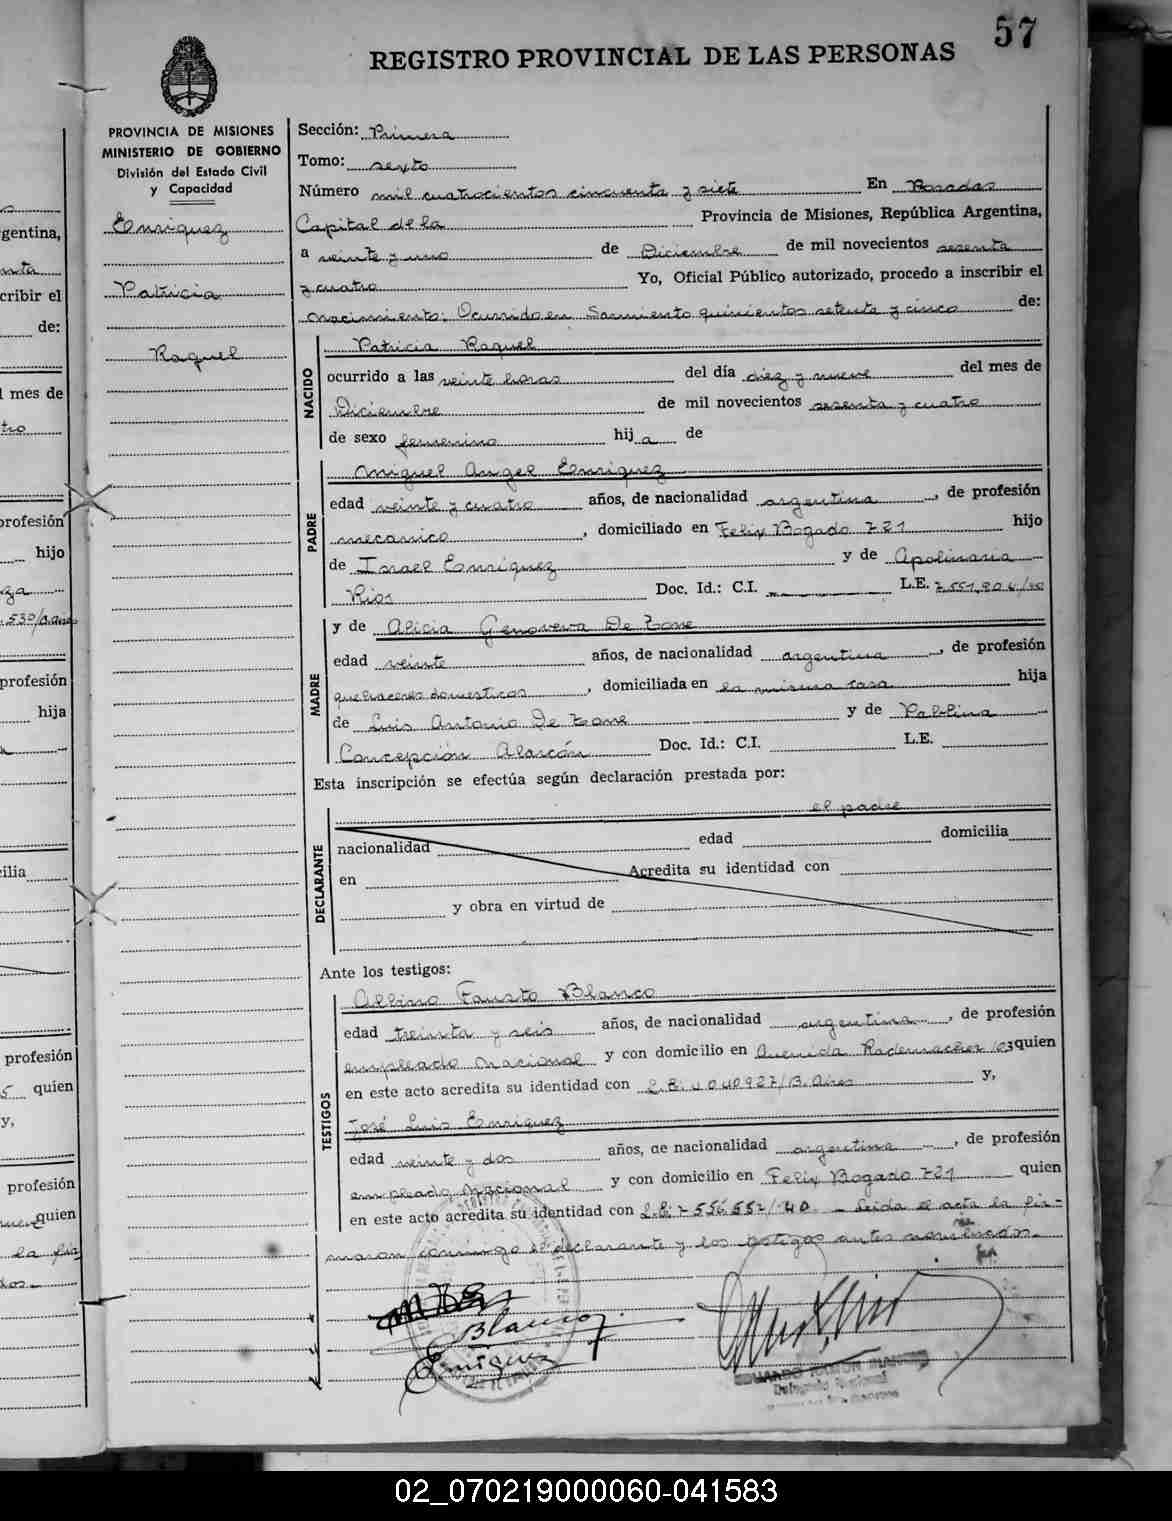 57
REGISTRO PROVINCIAL DE LAS PERSONAS
PROVINCIA DE MISIONES
MINISTERIO DE GOBIERNO
División del Estado Civil
y Capacidad
Enriquez
Patricia
Raquel
Sección: Primera
Tomo: sexto
Número mil cuatrocientos cincuenta y siete En Posadas
Capital de la Provincia de Misiones, República Argentina,
a veinte y uno de Diciembre de mil novecientos sesenta
y cuatro Yo, Oficial Público autorizado, procedo a inscribir el
nacimiento: Ocurrido en Sarmiento quinientos setenta y cinco de:
NACIDO
Patricia Raquel
ocurrido a las veinte horas del día diez y nueve del mes de
Diciembre de mil novecientos sesenta y cuatro
de sexo femenino hij a de
PADRE
Miguel Angel Enriquez
edad veinte y cuatro años, de nacionalidad argentina, de profesión
mecanico, domiciliado en Felix Bogado 721 hijo
de Israel Enriquez y de Apolinaria
Rios Doc. Id.: C.I. L.E. 7.551.804/40
MADRE
y de Alicia Genoveva De Zone
edad veinte años, de nacionalidad argentina, de profesión
quehaceres domesticos, domiciliada en la misma casa hija
de Luis Antonio De Zone y de Pablina
Concepción Alarcón Doc. Id.: C.I. L.E.
Esta inscripción se efectúa según declaración prestada por:
DECLARANTE
el padre
nacionalidad edad domicilia
en Acredita su identidad con
y obra en virtud de
Ante los testigos:
TESTIGOS
Albino Fausto Blanco
edad treinta y seis años, de nacionalidad argentina, de profesión
empleado nacional y con domicilio en Avenida Rademacher 103 quien
en este acto acredita su identidad con L.E. 4040927/B. Aires y,
José Luis Enriquez
edad veinte y dos años, de nacionalidad argentina, de profesión
empleado nacional y con domicilio en Felix Bogado 721 quien
en este acto acredita su identidad con L.E. 7556552/40 - Leida el acta la fir-
maron conmigo el declarante y los testigos antes nombrados.-
Blanco
Enriquez
02_070219000060-041583